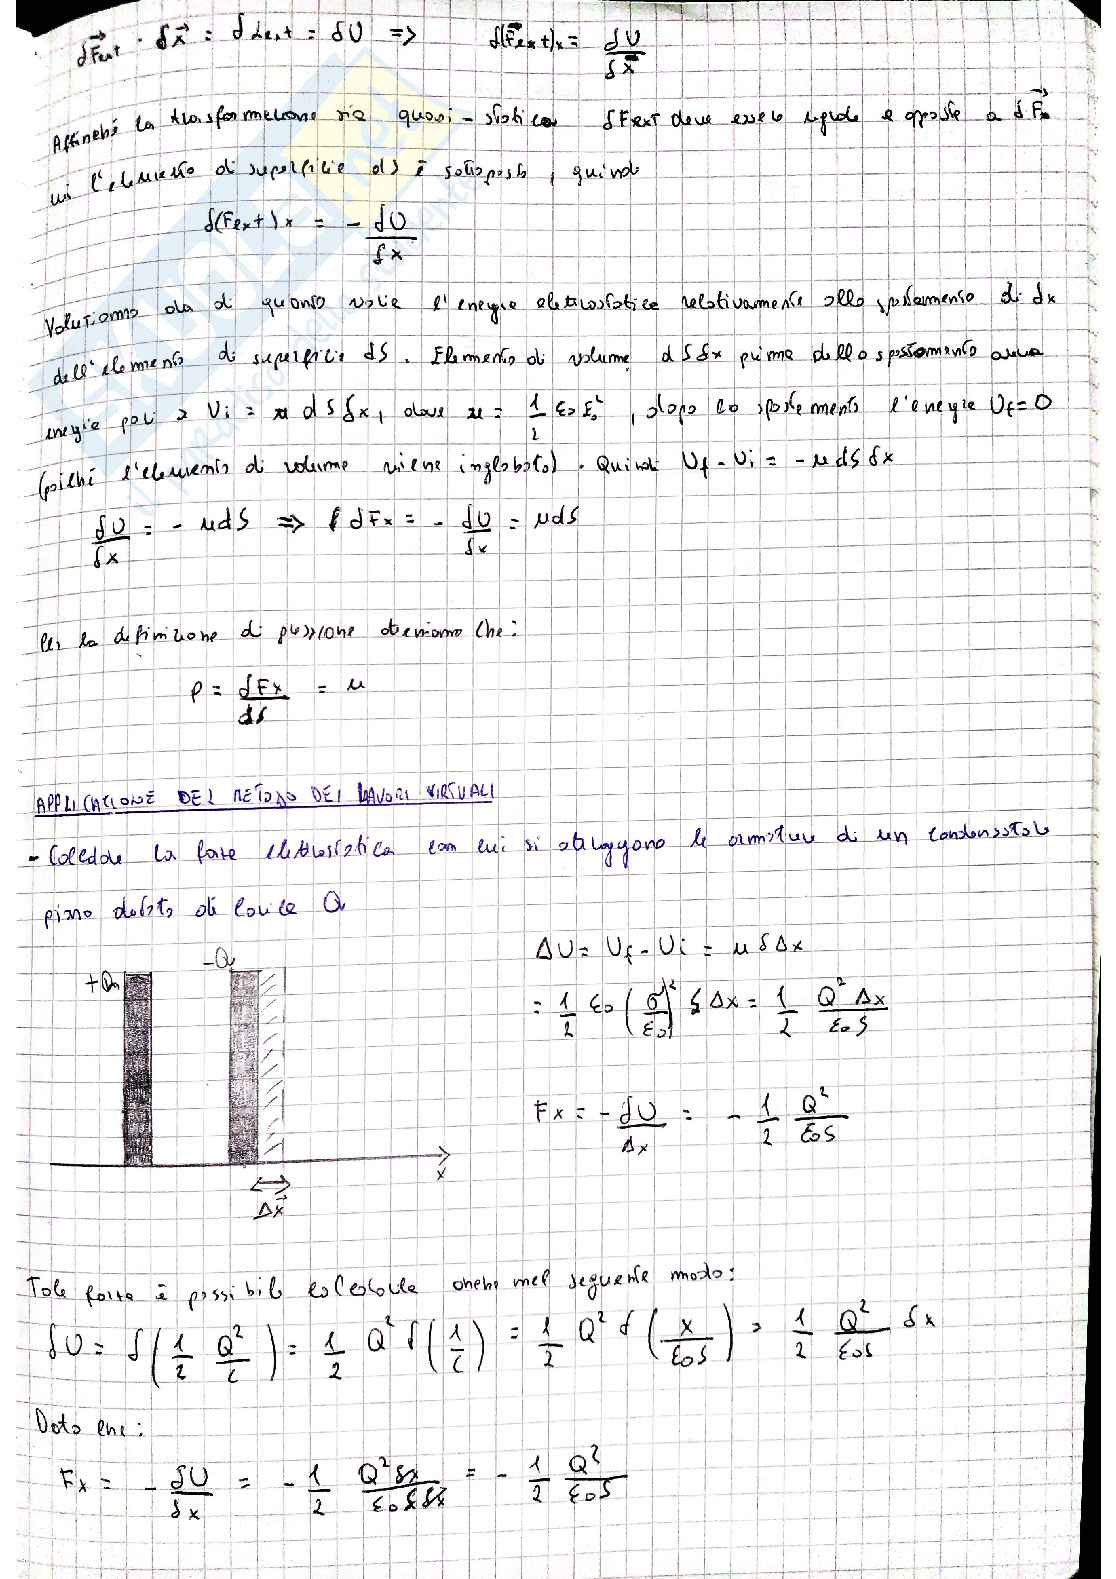 δF⃗ext · δx⃗ = δLext = δU => δ(F⃗ext)x = δU/δx⃗
Affinché la trasformazione sia quasi-statica δFext deve essere uguale e opposta a δF⃗
cui l'elemento di superficie dS è sottoposto, quindi
δ(Fext)x = - δU/δx
Valutiamo ora di quanto varia l'energia elettrostatica relativamente allo spostamento di δx
dell'elemento di superficie dS. Elemento di volume dS δx prima dello spostamento aveva
energia pari a Ui = u dS δx, dove u = 1/2 ε0 E0², dopo lo spostamento l'energia Uf=0
(poiché l'elemento di volume viene inglobato). Quindi Uf-Ui = -u dS δx
δU/δx = - u dS => dFx = - δU/δx = u dS
Per la definizione di pressione otteniamo che:
P = dFx/dS = u
APPLICAZIONE DEL METODO DEI LAVORI VIRTUALI
- Calcolare la forza elettrostatica con cui si attraggono le armature di un condensatore
piano dotato di carica Q
+Q
-Q
x
Δx⃗
ΔU = Uf - Ui = u S Δx
= 1/2 ε0 (σ/ε0)² S Δx = 1/2 Q² Δx/ε0 S
Fx = - δU/Δx = - 1/2 Q²/ε0 S
Tale forza è possibile calcolarla anche nel seguente modo:
δU = δ(1/2 Q²/C) = 1/2 Q² δ(1/C) = 1/2 Q² δ(x/ε0 S) = 1/2 Q²/ε0 S δx
Dato che:
Fx = - δU/δx = - 1/2 Q² δx/ε0 S δx = - 1/2 Q²/ε0 S